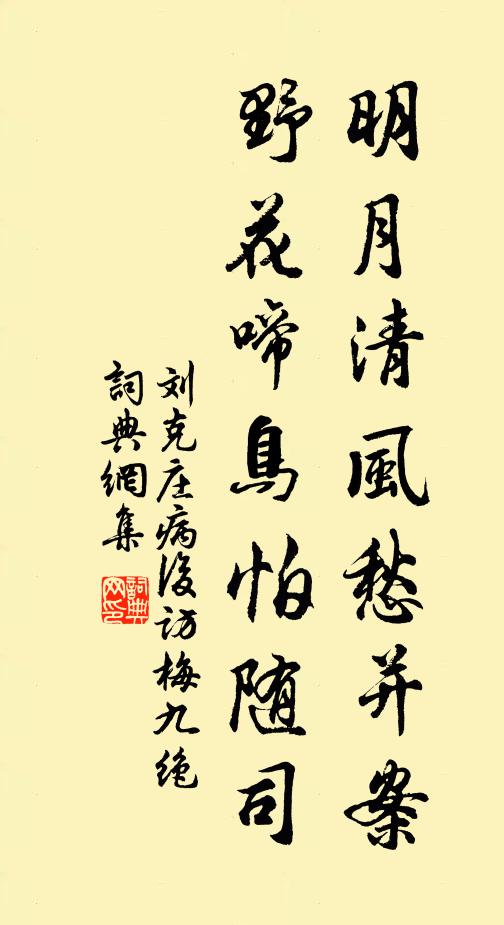 明月清風愁并案
野花啼鳥怕随司
刘克庄病後访梅九绝
詞典網集